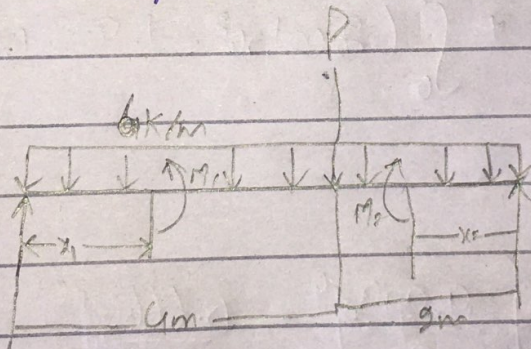 P
6k/m
M₁
M₂
x₁
x₂
4m
2m